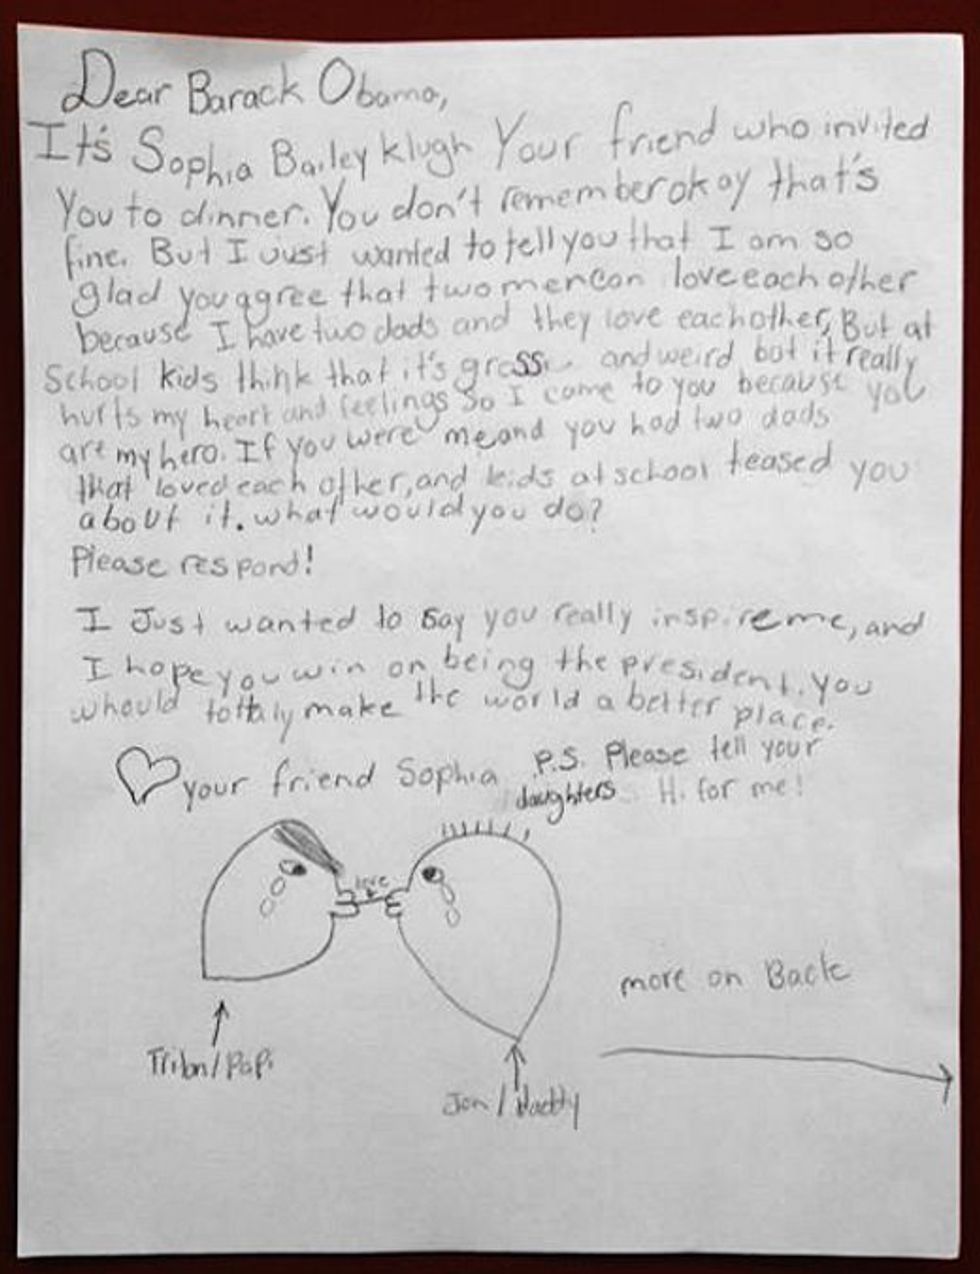 Dear Barack Obama,
It's Sophia Bailey klugh Your friend who invited
You to dinner. You don't remember okay that's
fine. But I Just wanted to tell you that I am so
glad you agree that two men can love each other
because I have two dads and they love each other, But at
School kids think that it's gross and weird but it really
hurts my heart and feelings So I come to you because you
are my hero. If you were me and you had two dads
that loved each other, and kids at school teased you
about it. what would you do?
Please respond!
I Just wanted to say you really inspire me, and
I hope you win on being the president. You
whould tottaly make the world a better place.
your friend Sophia
P.S. Please tell your
daughters Hi for me!
love
more on Back
/ Papi
Jon / Daddy